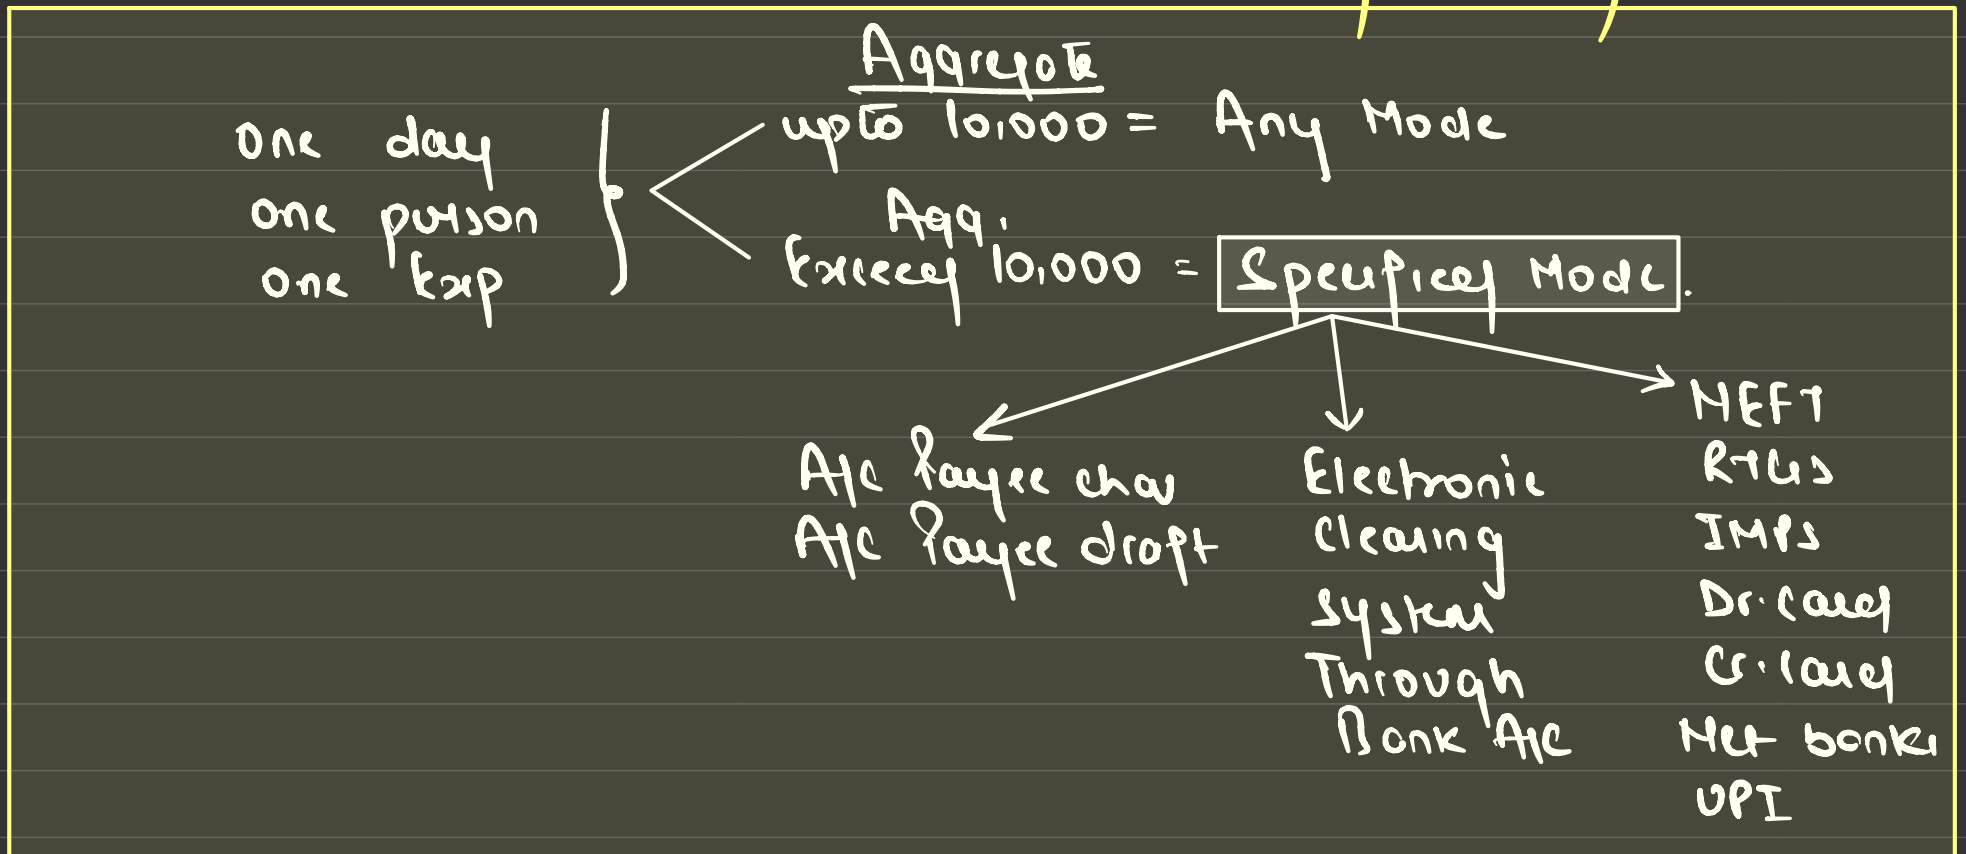 Aggregate
one day
one person
one Exp
upto 10,000 = Any Mode
Agg.
Exceed 10,000 = Specified Mode.
A/c Payee
A/c Payee draft
Electronic
Clearing
System
Through
Bank A/c
NEFT
RTGS
IMPS
Dr. Card
Cr. Card
Net
UPI